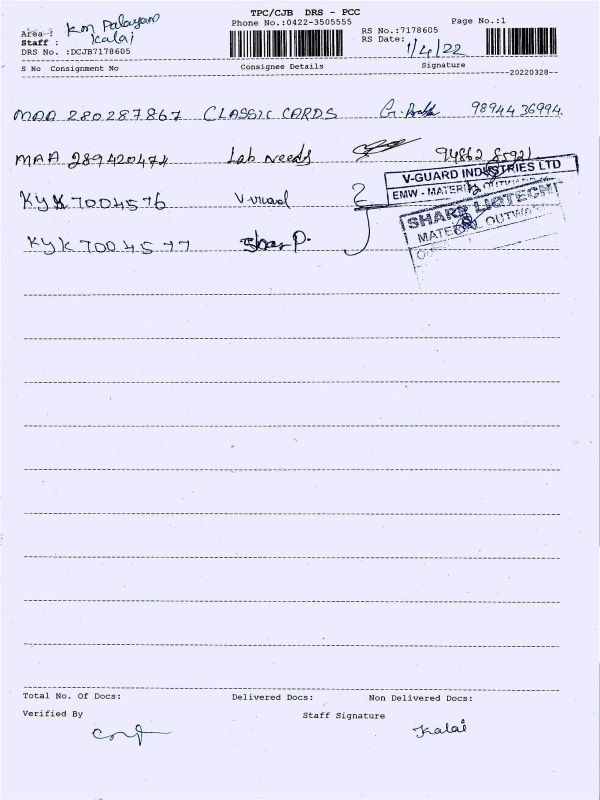 TPC/CJB DRS - PCC
Area : km Palayam
Phone No.:0422-3505555
Page No.:1
Staff : Kalai
RS No.:7178605
DRS No. :DCJB7178605
RS Date: 1/4/22
S No Consignment No Consignee Details Signature
20220328
MAA 280287867 CLASSIC CARDS 98944 36994.
MAA 289420474 Lab Needs 94862 85921
V-GUARD INDUSTRIES LTD
EMW - MATERIAL OUTWARD
KYK 7004576
SHARP LIQTECH
MATERIAL OUTWARD
KYK 7004577 Sharp.
Total No. Of Docs: Delivered Docs: Non Delivered Docs:
Verified By Staff Signature
Kalai